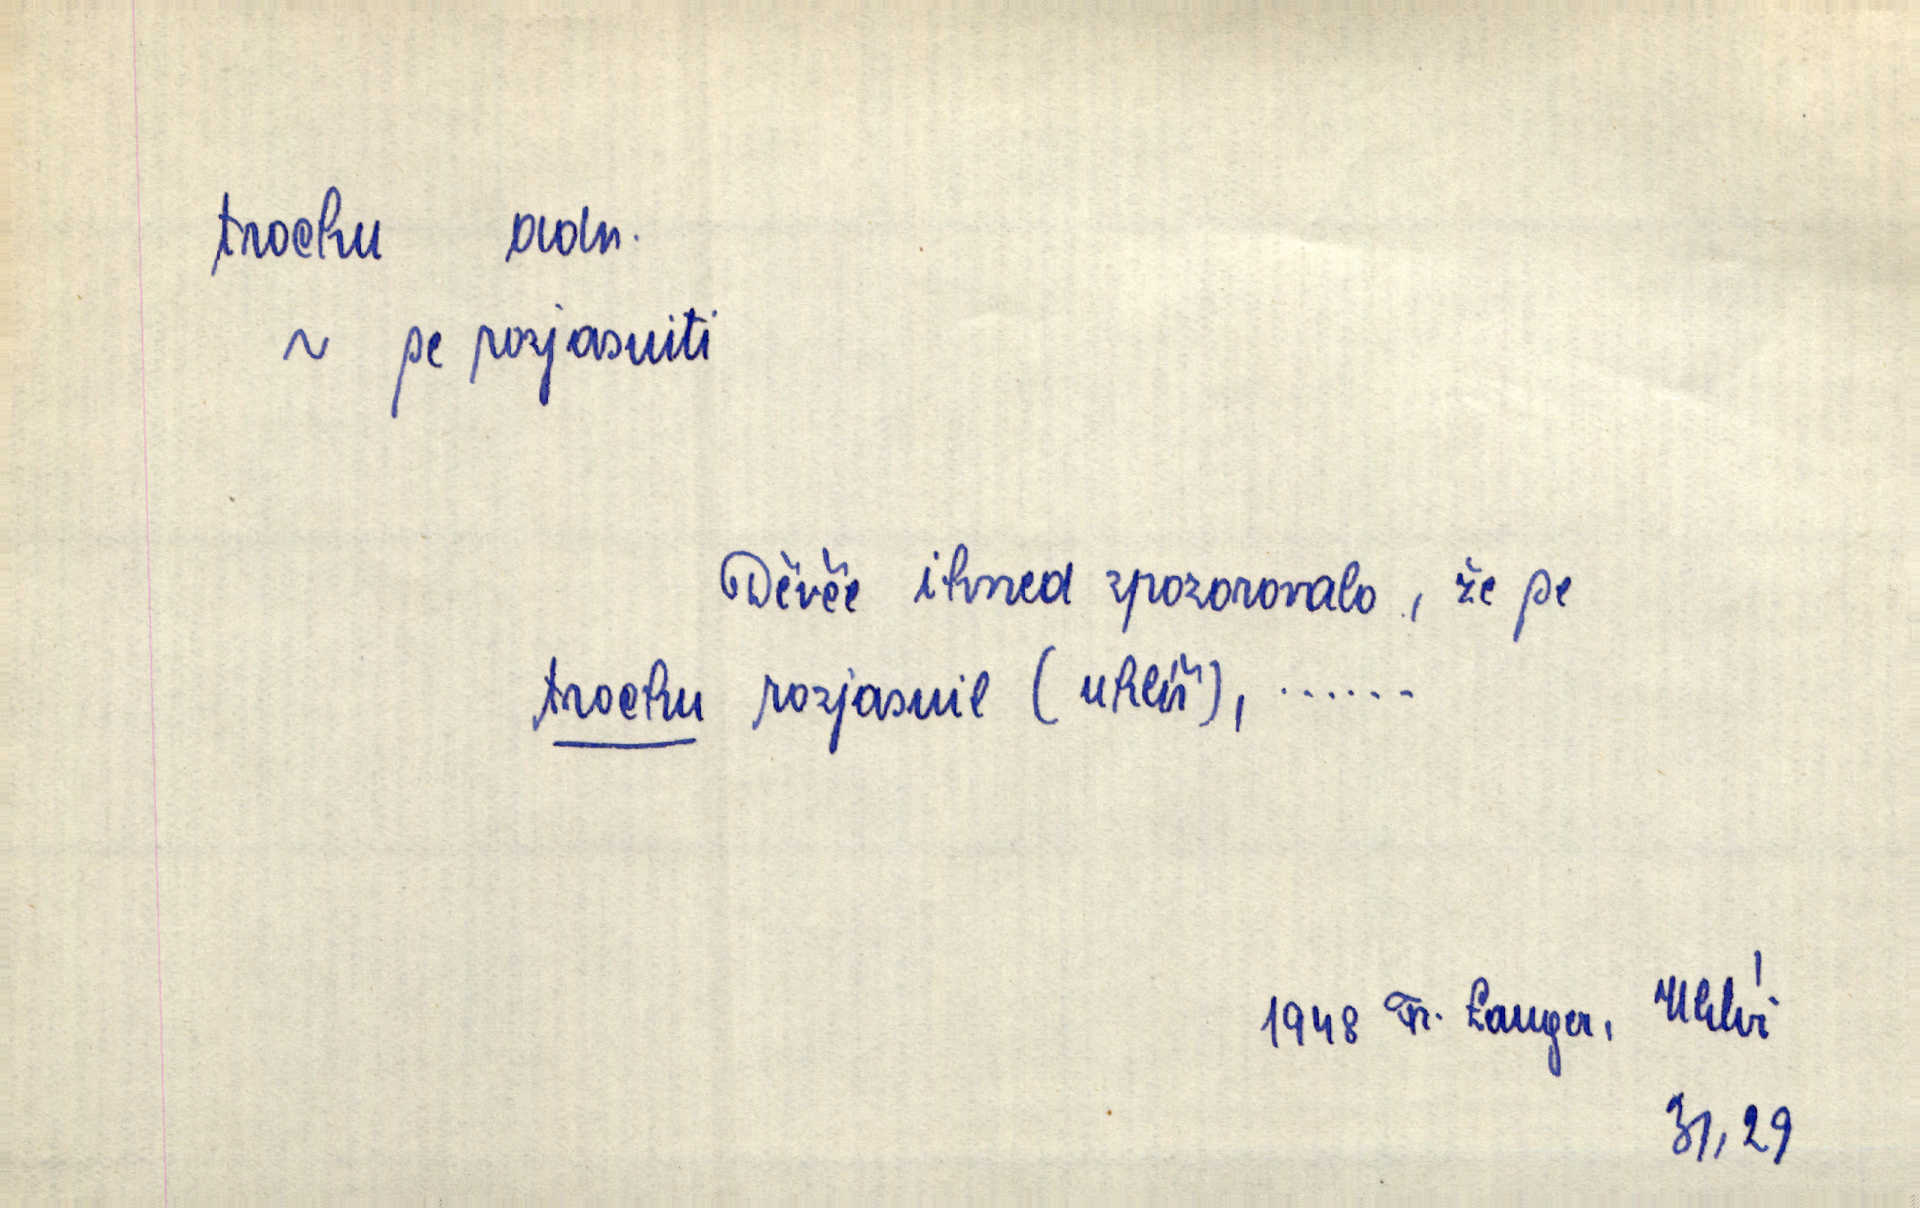 trochu adv.
~ se rozjasniti
Děvče ihned zpozorovalo, že se
trochu rozjasnil (uhlíř), ......
1948 Fr. Langer, Uhlíř
31,29